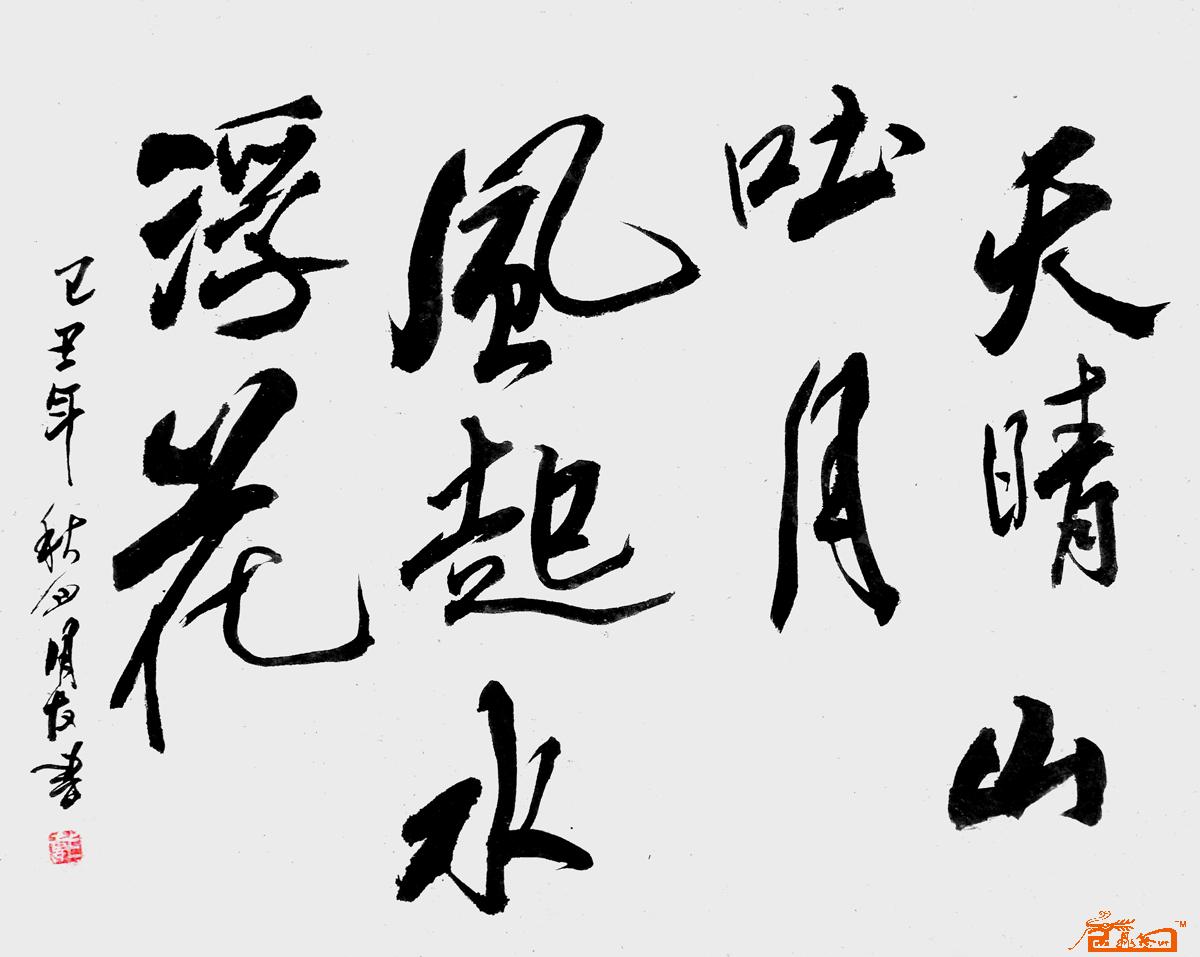 天晴山
吐月
風起水
浮花
己丑年秋月明友書